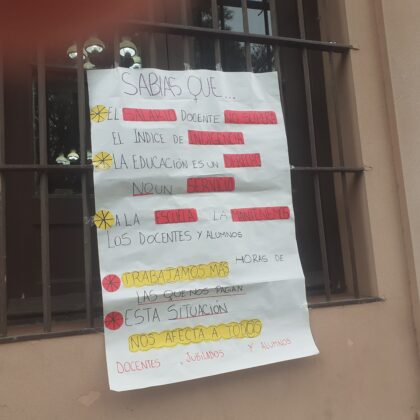 SABIAS QUE...
EL SALARIO DOCENTE NO SUPERA
EL INDICE DE INDIGENCIA
LA EDUCACIÓN ES UN
NO UN SERVICIO
A LA ESCUELA LA MANTENEMOS
LOS DOCENTES Y ALUMNOS
HORAS DE
TRABAJAMOS MÁS
LAS QUE NOS PAGAN
ESTA SITUACIÓN
NOS AFECTA A TODOS
DOCENTES, JUBILADOS Y ALUMNOS